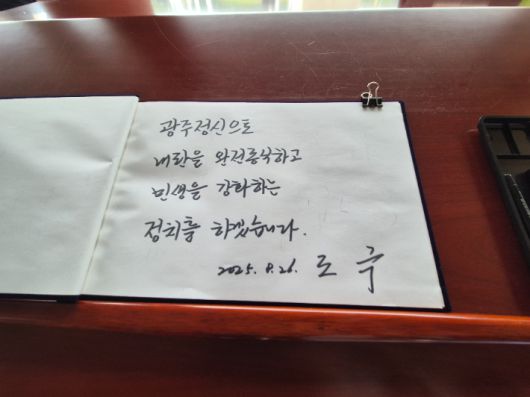 광주정신으로
내란을 완전종식하고
민생을 강화하는
정치를 하겠습니다.
2025. 8. 26. 조 국